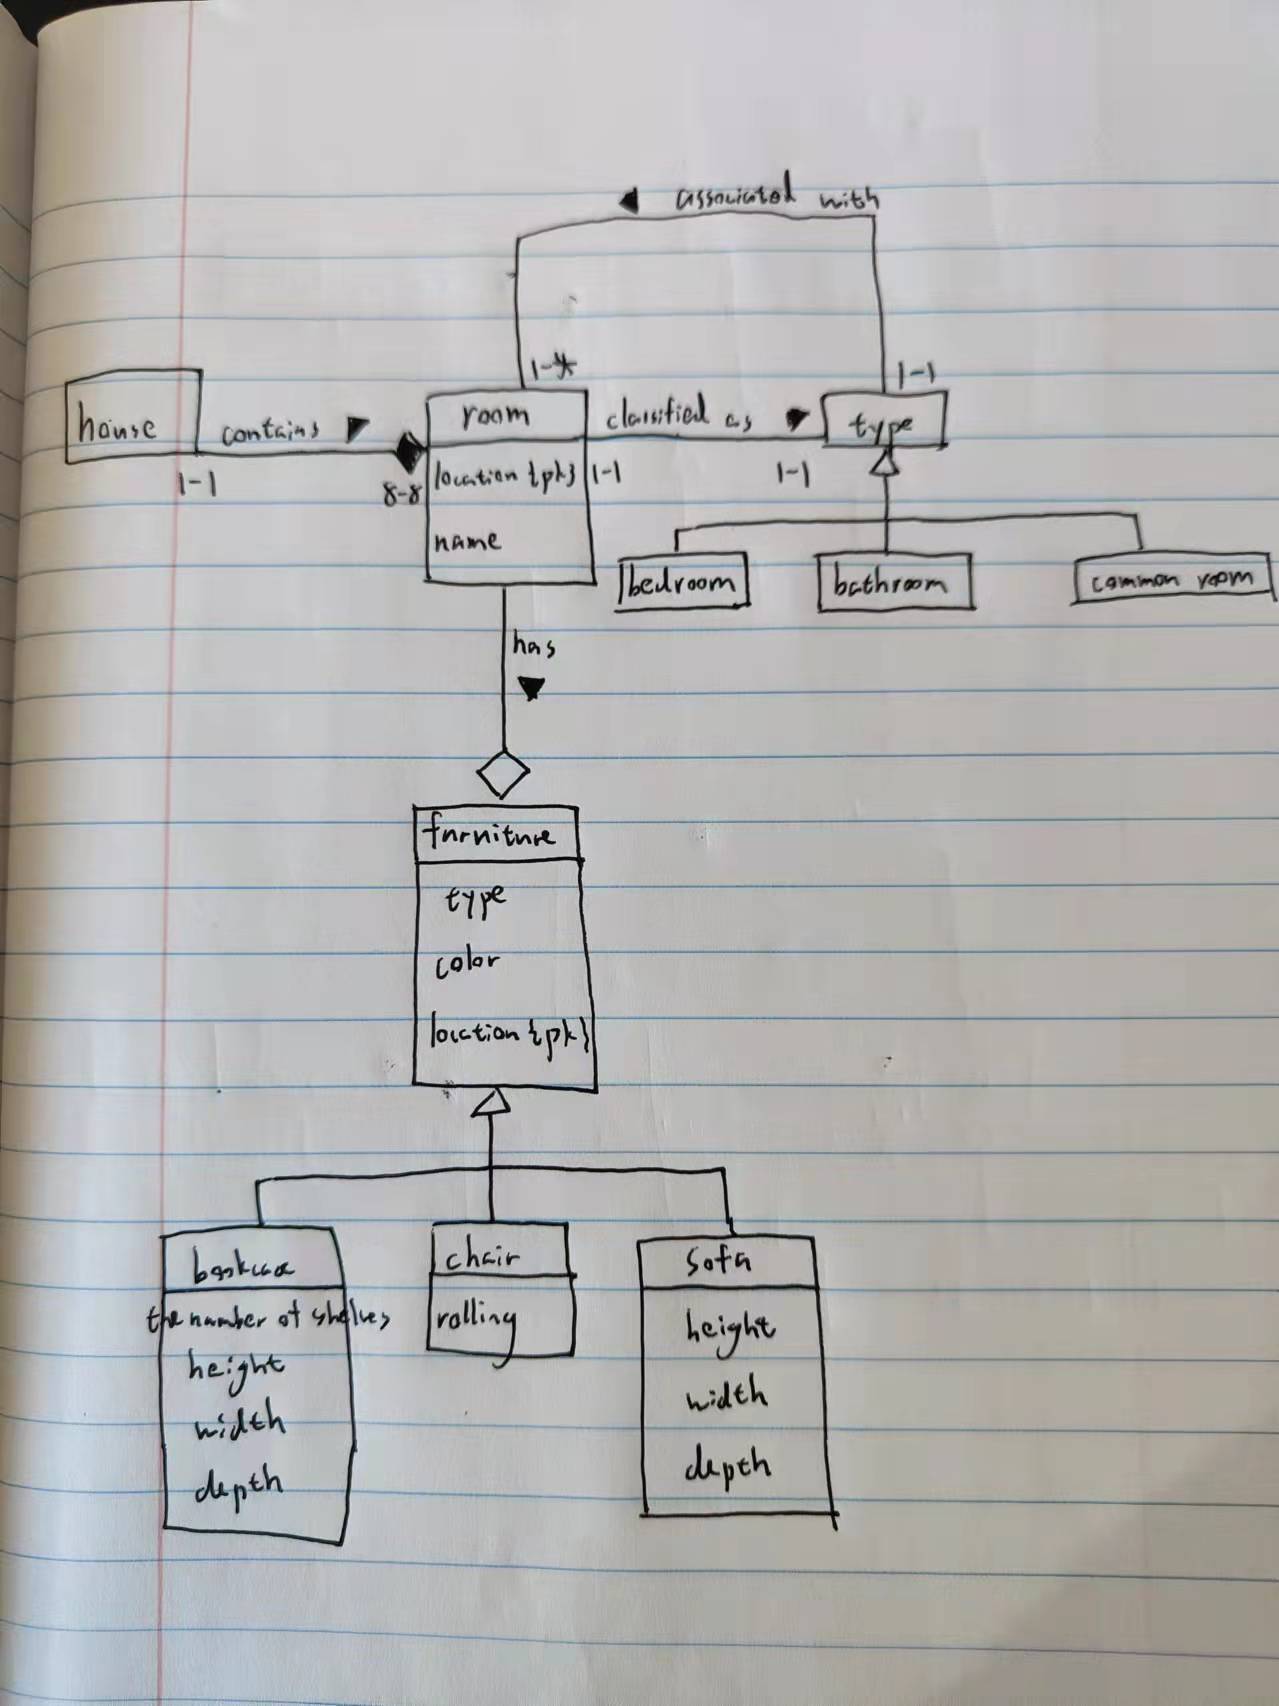 associated with
1-*
1-1
house
contains
1-1
8-8
room
location {pk}
name
classified as
1-1
1-1
type
bedroom
bathroom
common room
has
furniture
type
color
location {pk}
the number of shelves
height
width
depth
chair
rolling
sofa
height
width
depth